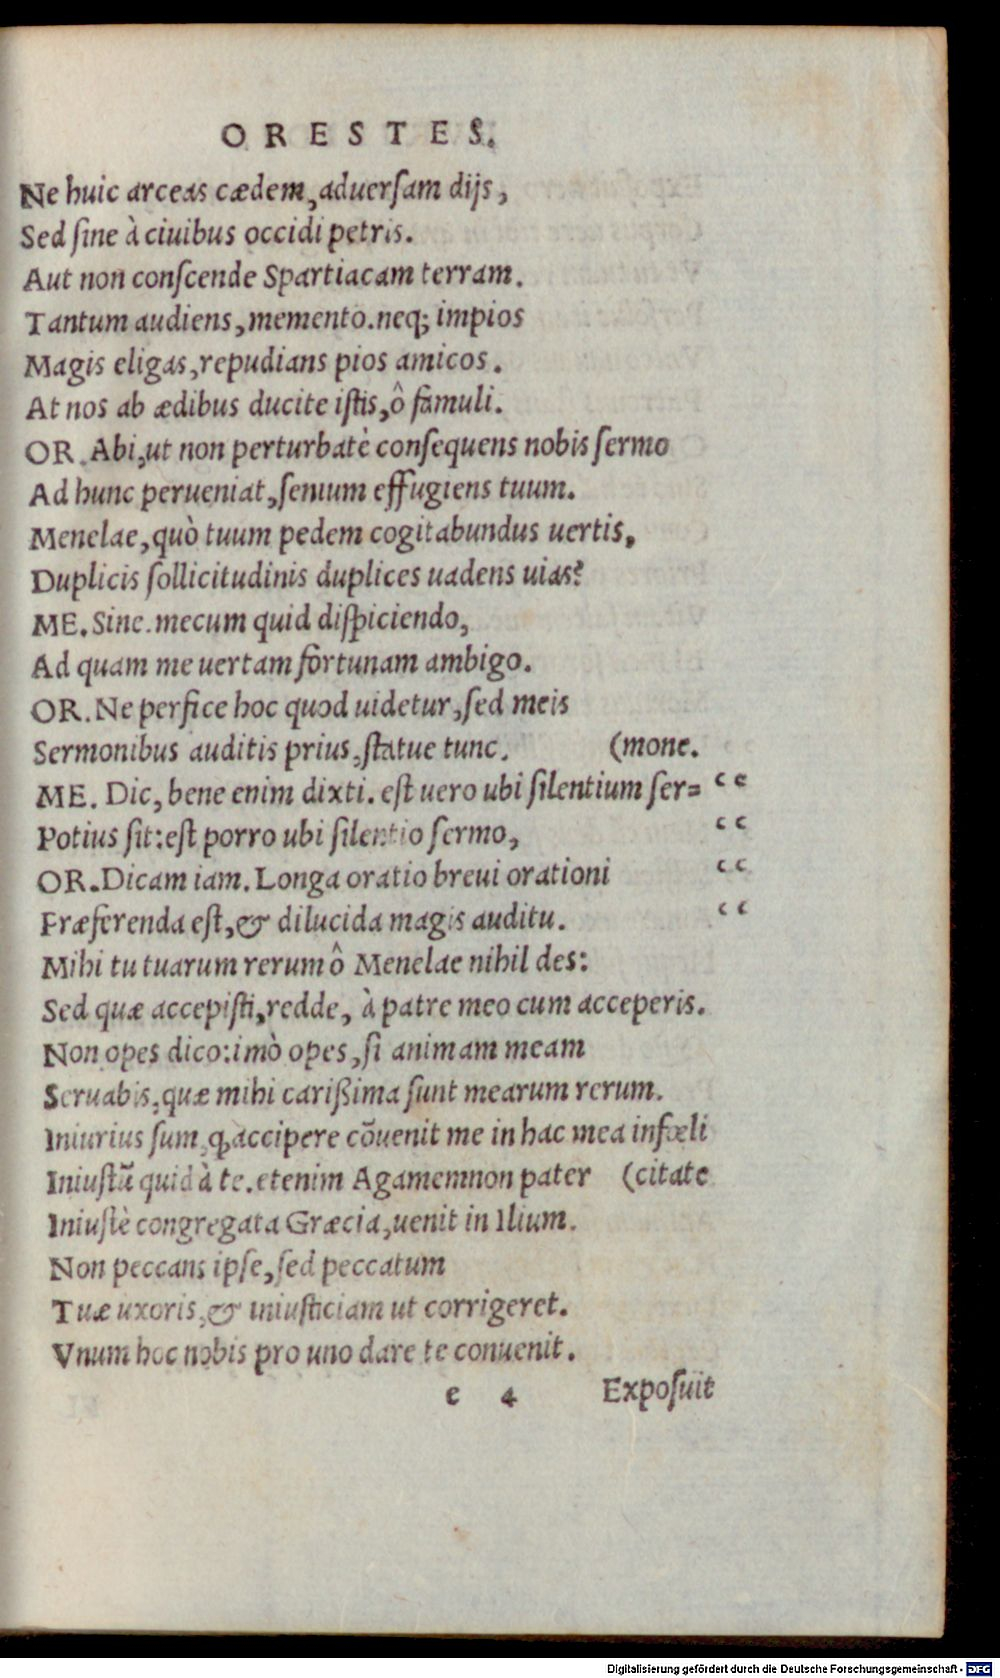 ORESTES.
Ne huic arceas cædem, aduerſam dijs,
Sed ſine à ciuibus occidi petris.
Aut non conſcende Spartiacam terram.
Tantum audiens, memento. neq; impios
Magis eligas, repudians pios amicos.
At nos ab ædibus ducite iſtis, ô famuli.
OR. Abi, ut non perturbatè conſequens nobis ſermo
Ad hunc perueniat, ſenium effugiens tuum.
Menelae, quò tuum pedem cogitabundus uertis,
Duplicis ſollicitudinis duplices uadens uias?
ME. Sine. mecum quid diſpiciendo,
Ad quam me uertam fortunam ambigo.
OR. Ne perfice hoc quod uidetur, ſed meis
Sermonibus auditis prius, ſtatue tunc. (mone.
ME. Dic, bene enim dixti. eſt uero ubi ſilentium ſer= “
Potius ſit: eſt porro ubi ſilentio ſermo, “
OR. Dicam iam. Longa oratio breui orationi “
Præferenda eſt, & dilucida magis auditu. “
Mihi tu tuarum rerum ô Menelae nihil des:
Sed quæ accepiſti, redde, à patre meo cum acceperis.
Non opes dico: imò opes, ſi animam meam
Seruabis, quæ mihi carißima ſunt mearum rerum.
Iniurius ſum, ꝙ accipere cōuenit me in hac mea infœli
Iniuſtū quid à te. etenim Agamemnon pater (citate
Iniuſtè congregata Græcia, uenit in Ilium.
Non peccans ipſe, ſed peccatum
Tuæ uxoris, & iniuſticiam ut corrigeret.
Vnum hoc nobis pro uno dare te conuenit.
e 4 Expoſuit
Digitalisierung gefördert durch die Deutsche Forschungsgemeinschaft - DFG